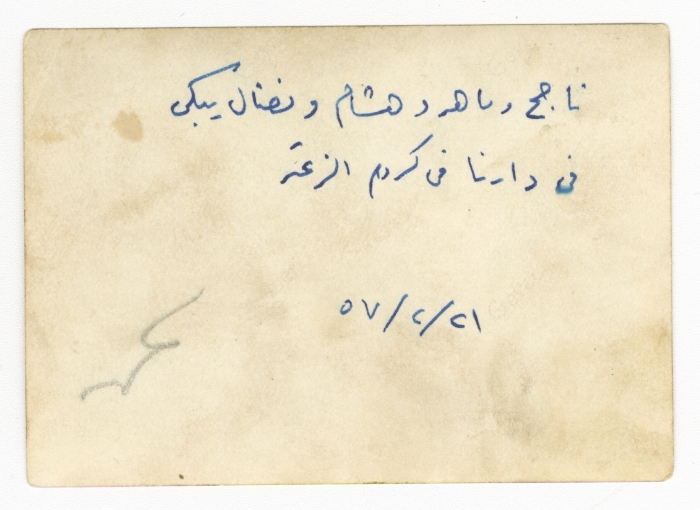 ناجح وماهر وهشام ونضال يبكي
في دارنا في كرم الزعتر
٥٧/٢/٢١